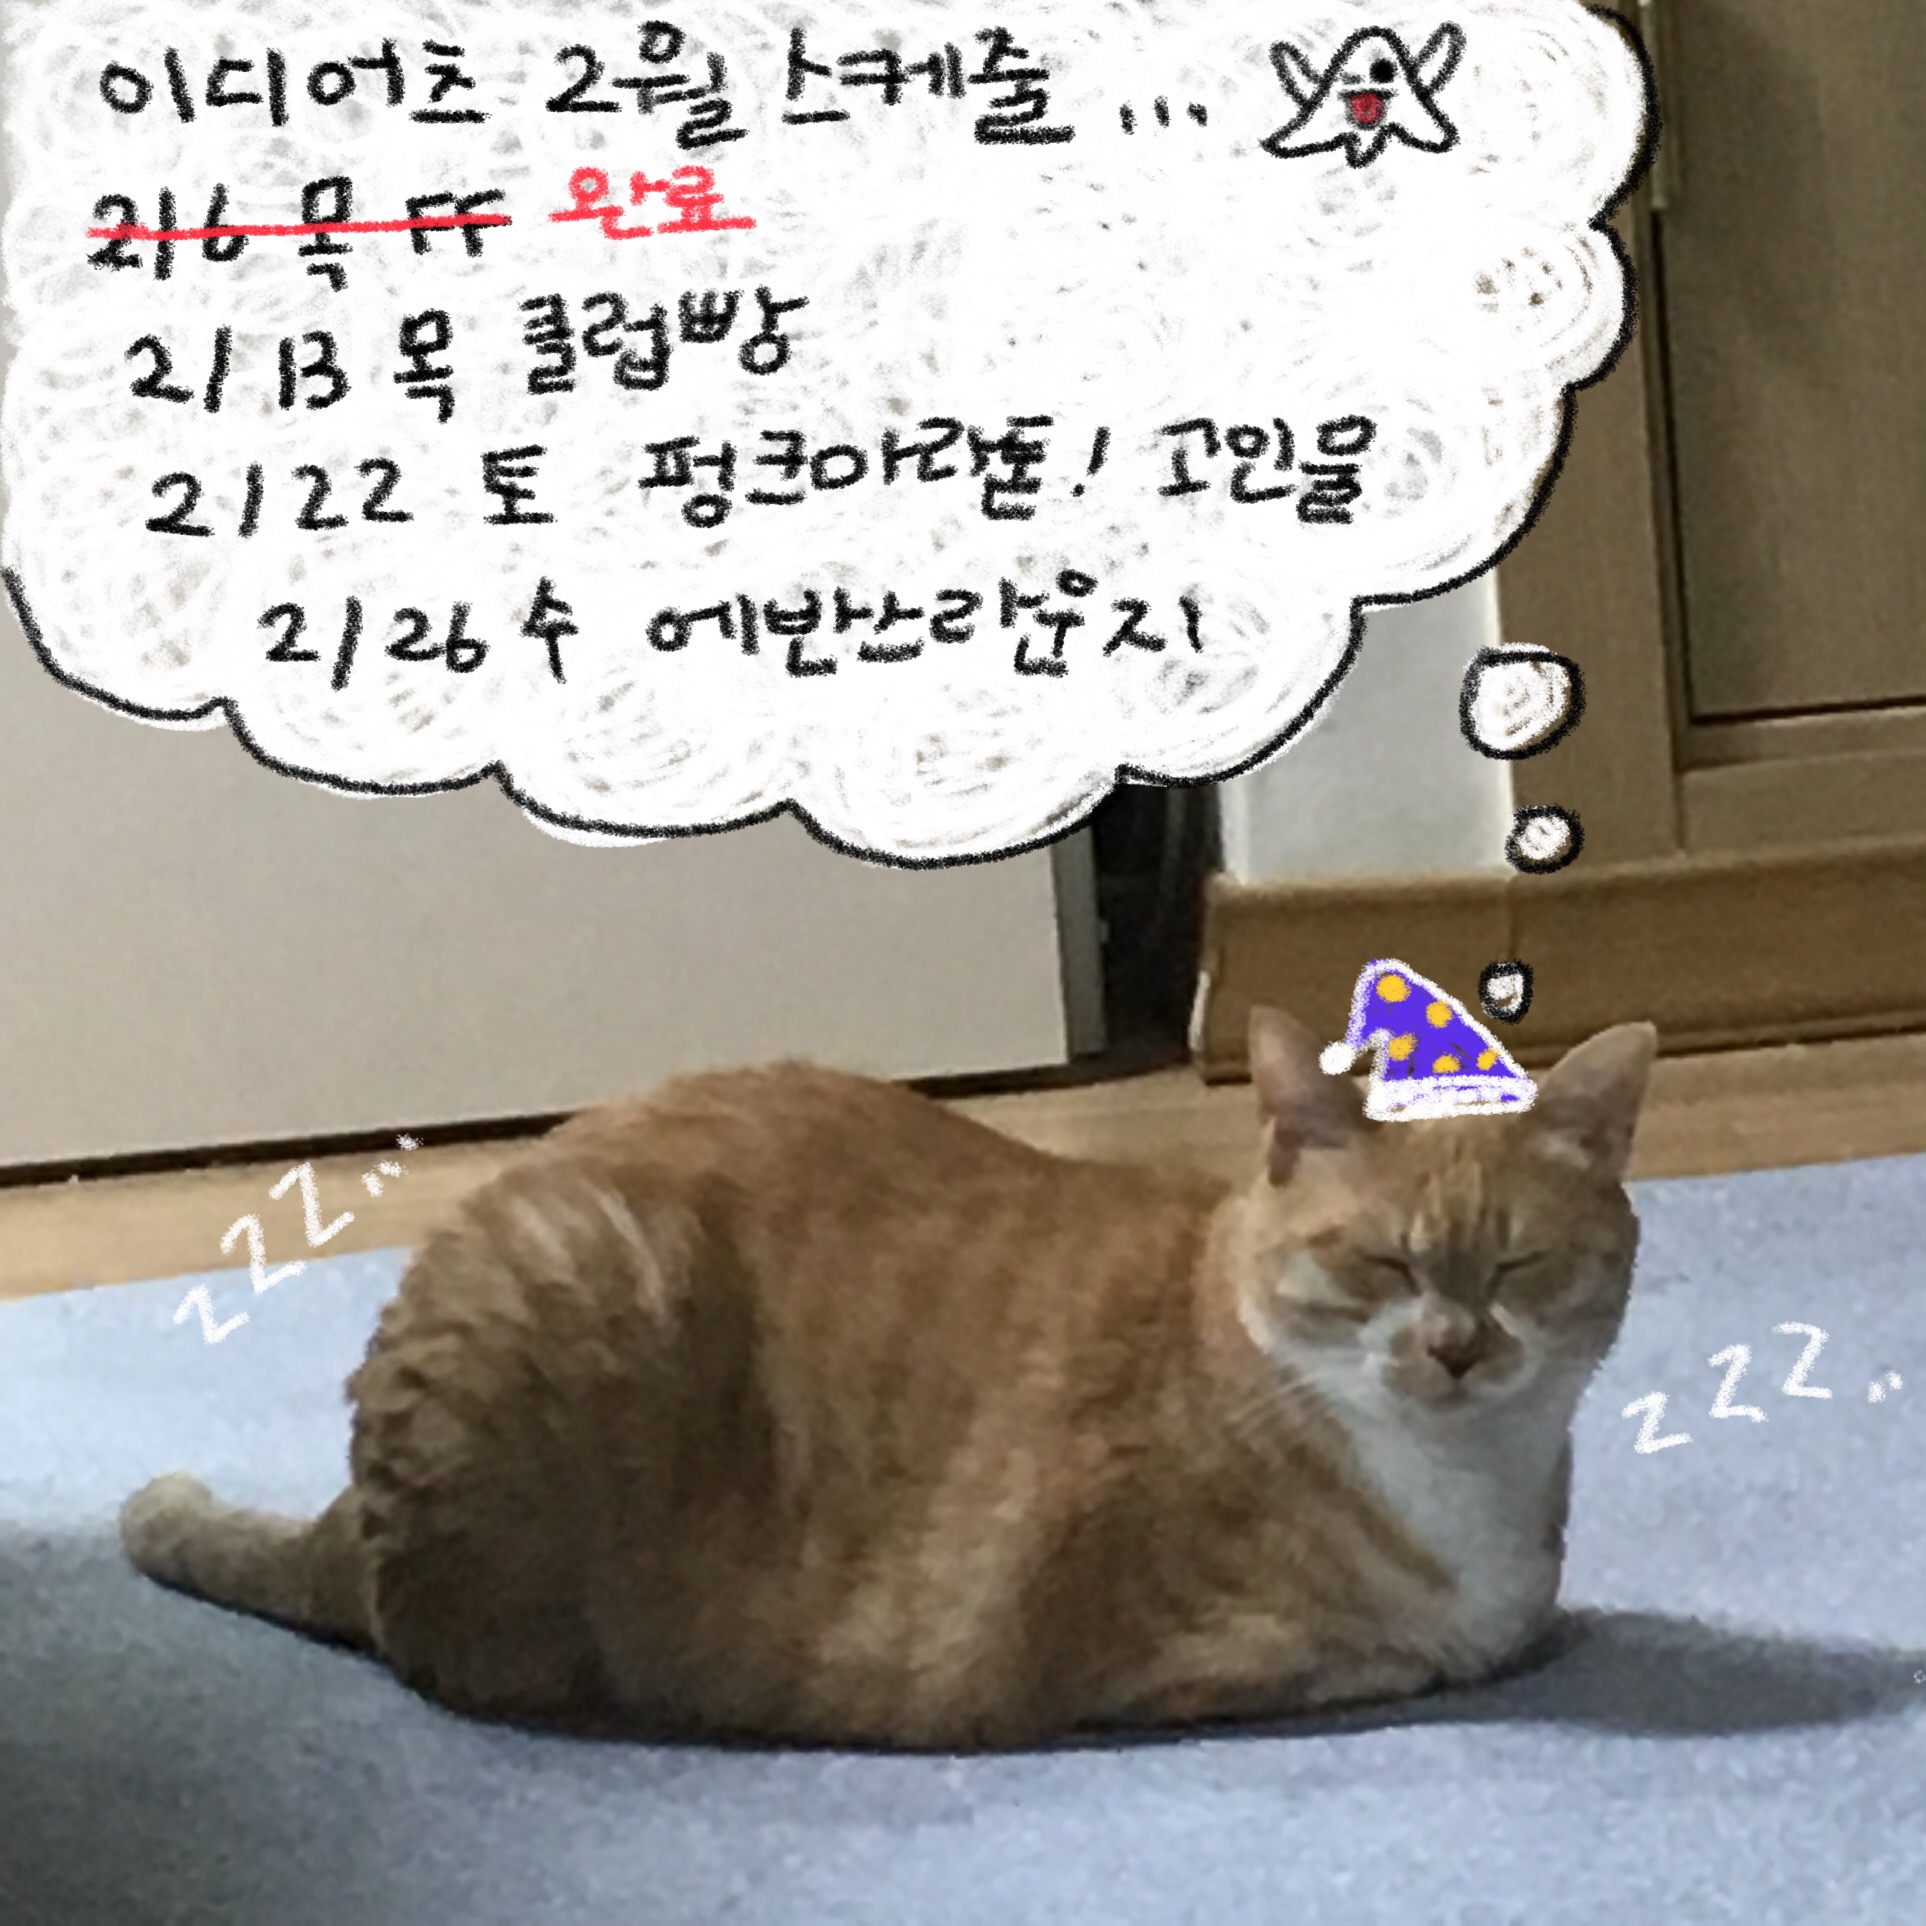 이디어츠 2월 스케줄...
2/6 목 FF 완료
2/13 목 클럽빵
2/22 토 펑크마라톤! 고인물
2/26 수 에반스라운지
zzz...
zzz..